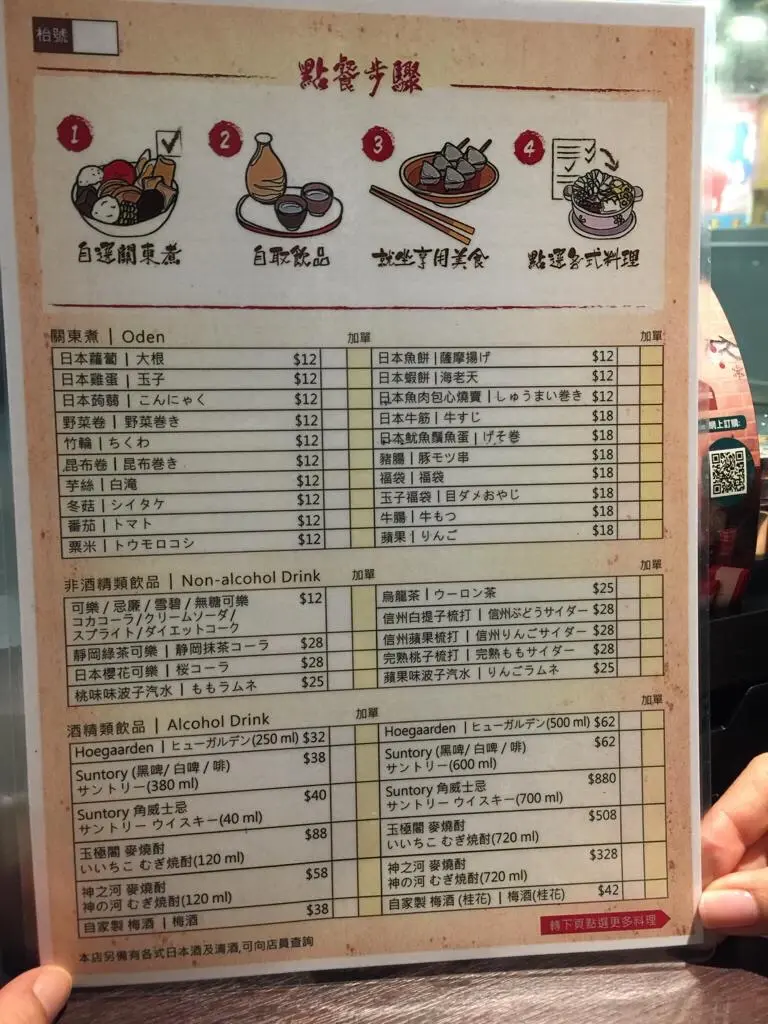 枱號
點餐步驟
1
2
3
4
自選關東煮
自取飲品
就坐享用美食
點選各式料理
關東煮 | Oden 加單 加單
日本蘿蔔 | 大根 $12
日本雞蛋 | 玉子 $12
日本蒟蒻 | こんにゃく $12
野菜卷 | 野菜巻き $12
竹輪 | ちくわ $12
昆布卷 | 昆布巻き $12
芋絲 | 白滝 $12
冬菇 | シイタケ $12
番茄 | トマト $12
粟米 | トウモロコシ $12
日本魚餅 | 薩摩揚げ $12
日本蝦餅 | 海老天 $12
日本魚肉包心燒賣 | しゅうまい巻き $12
日本牛筋 | 牛すじ $18
日本魷魚鬚魚蛋 | げそ巻 $18
豬腸 | 豚モツ串 $18
福袋 | 福袋 $18
玉子福袋 | 目ダメおやじ $18
牛腸 | 牛もつ $18
蘋果 | りんご $18
非酒精類飲品 | Non-alcohol Drink 加單 加單
可樂 / 忌廉 / 雪碧 / 無糖可樂 $12
コカコーラ/クリームソーダ/
スプライト/ダイエットコーク
靜岡綠茶可樂 | 静岡抹茶コーラ $28
日本櫻花可樂 | 桜コーラ $28
桃味味波子汽水 | ももラムネ $25
烏龍茶 | ウーロン茶 $25
信州白提子梳打 | 信州ぶどうサイダー $28
信州蘋果梳打 | 信州りんごサイダー $28
完熟桃子梳打 | 完熟ももサイダー $28
蘋果味波子汽水 | りんごラムネ $25
酒精類飲品 | Alcohol Drink 加單 加單
Hoegaarden | ヒューガルデン(250 ml) $32
Suntory (黑啤/ 白啤 / 啡) $38
サントリー(380 ml)
Suntory 角威士忌 $40
サントリー ウイスキー(40 ml)
玉極閣 麥燒酎 $88
いいちこ むぎ焼酎(120 ml)
神之河 麥燒酎 $58
神の河 むぎ焼酎(120 ml)
自家製 梅酒 | 梅酒 $38
Hoegaarden | ヒューガルデン(500 ml) $62
Suntory (黑啤/ 白啤 / 啡) $62
サントリー(600 ml)
Suntory 角威士忌 $880
サントリー ウイスキー(700 ml)
玉極閣 麥燒酎 $508
いいちこ むぎ焼酎(720 ml)
神之河 麥燒酎 $328
神の河 むぎ焼酎(720 ml)
自家製 梅酒 (桂花) | 梅酒(桂花) $42
轉下頁點選更多料理
本店另備有各式日本酒及濁酒,可向店員查詢
網上訂購: